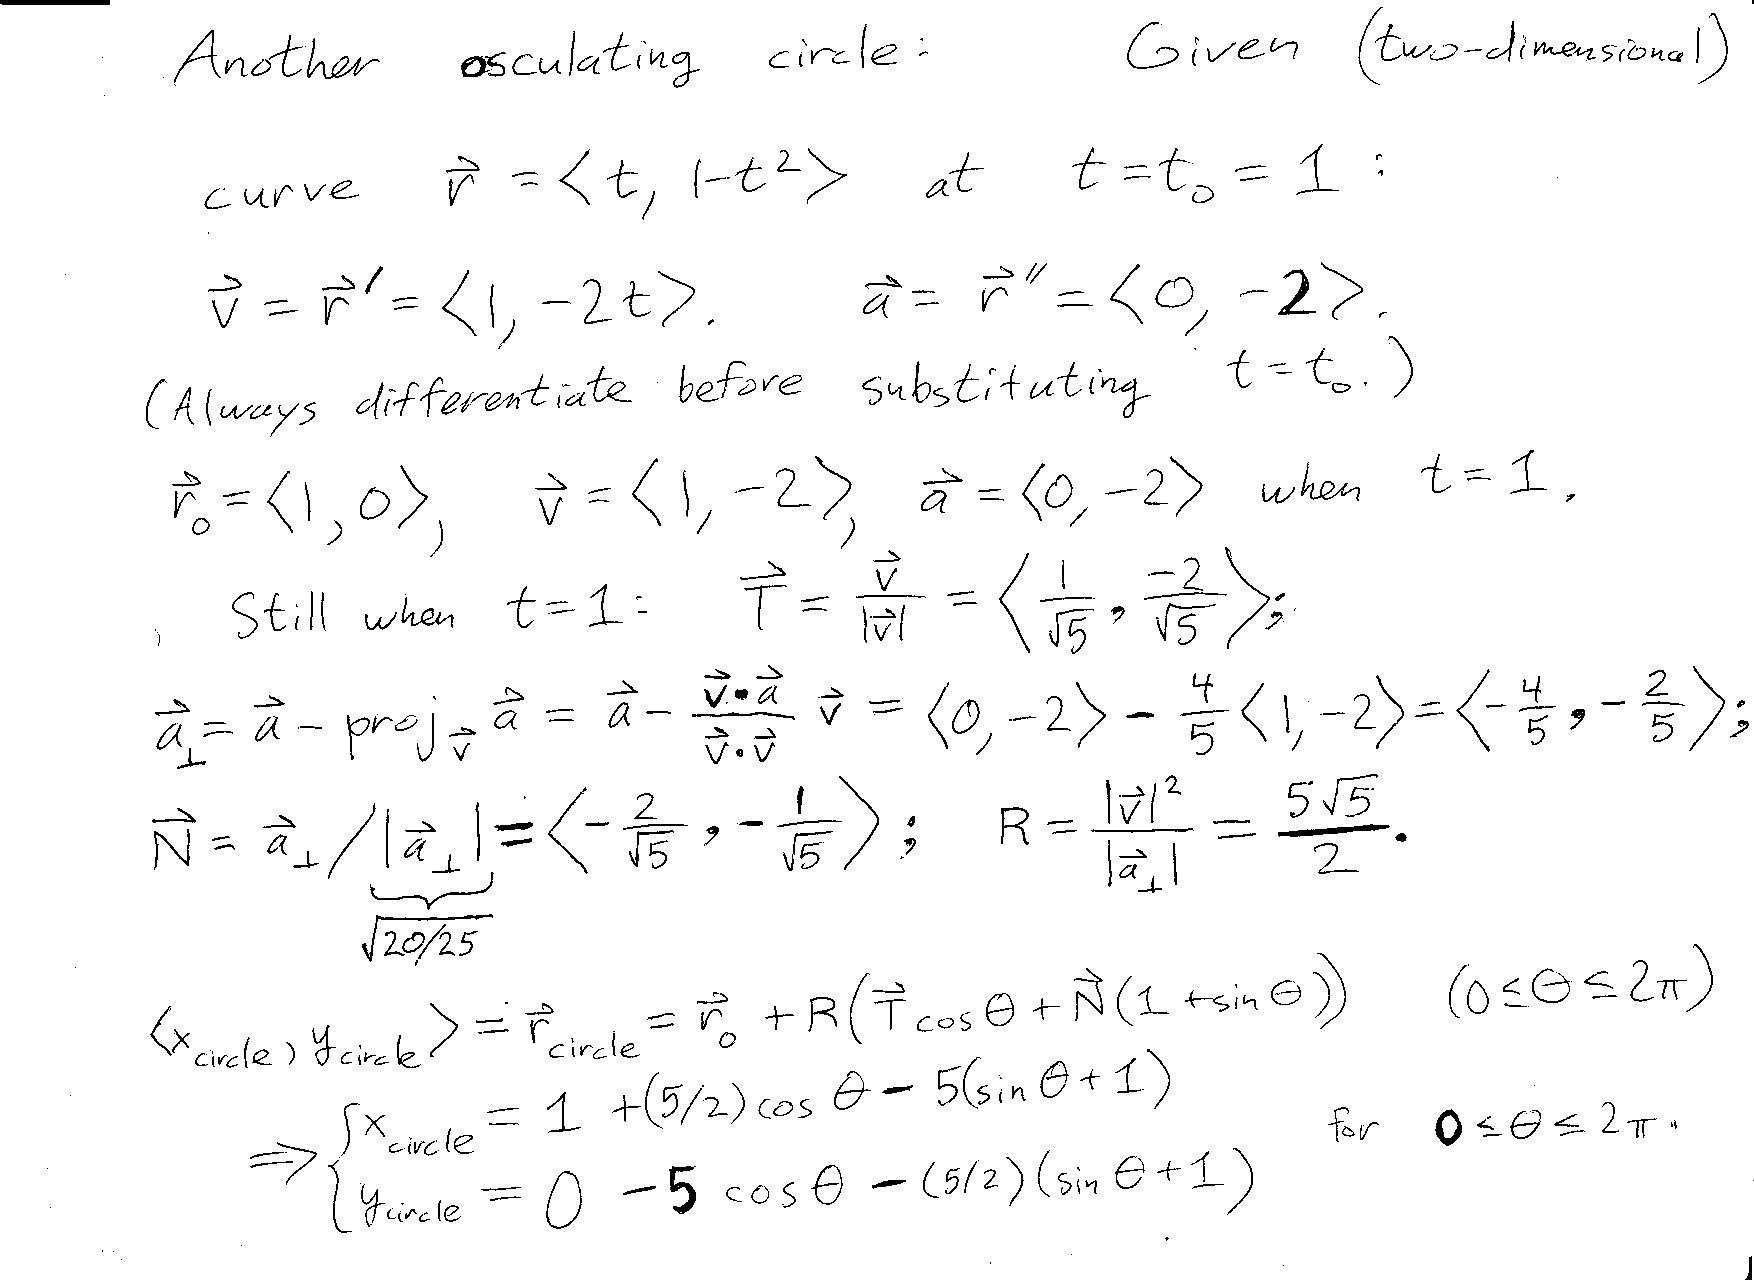 Another osculating circle: Given (two-dimensional)
curve r⃗ = <t, 1-t²> at t=t₀ = 1 :
v⃗ = r⃗′ = <1, -2t>. a⃗ = r⃗″ = <0, -2>.
(Always differentiate before substituting t=t₀.)
r⃗₀ = <1, 0>, v⃗ = <1, -2>, a⃗ = <0, -2> when t=1.
Still when t=1: T⃗ = v⃗/|v⃗| = <1/√5, -2/√5>;
a⃗⊥ = a⃗ - proj_v⃗ a⃗ = a⃗ - (v⃗•a⃗)/(v⃗•v⃗) v⃗ = <0, -2> - 4/5 <1, -2> = <-4/5, -2/5>;
N⃗ = a⃗⊥/|a⃗⊥| = <-2/√5, -1/√5>; R = |v⃗|²/|a⃗⊥| = 5√5/2.
√20/25
<x_circle, y_circle> = r⃗_circle = r⃗₀ + R(T⃗ cos θ + N⃗(1 + sin θ)) (0 ≤ θ ≤ 2π)
⇒ { x_circle = 1 + (5/2) cos θ - 5(sin θ + 1)
y_circle = 0 - 5 cos θ - (5/2)(sin θ + 1) for 0 ≤ θ ≤ 2π.